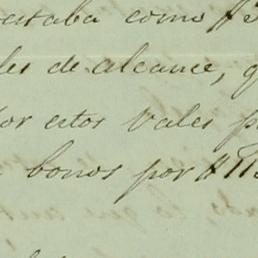 estaba como $
les de alcance, q
or estos vales p
bonos por $